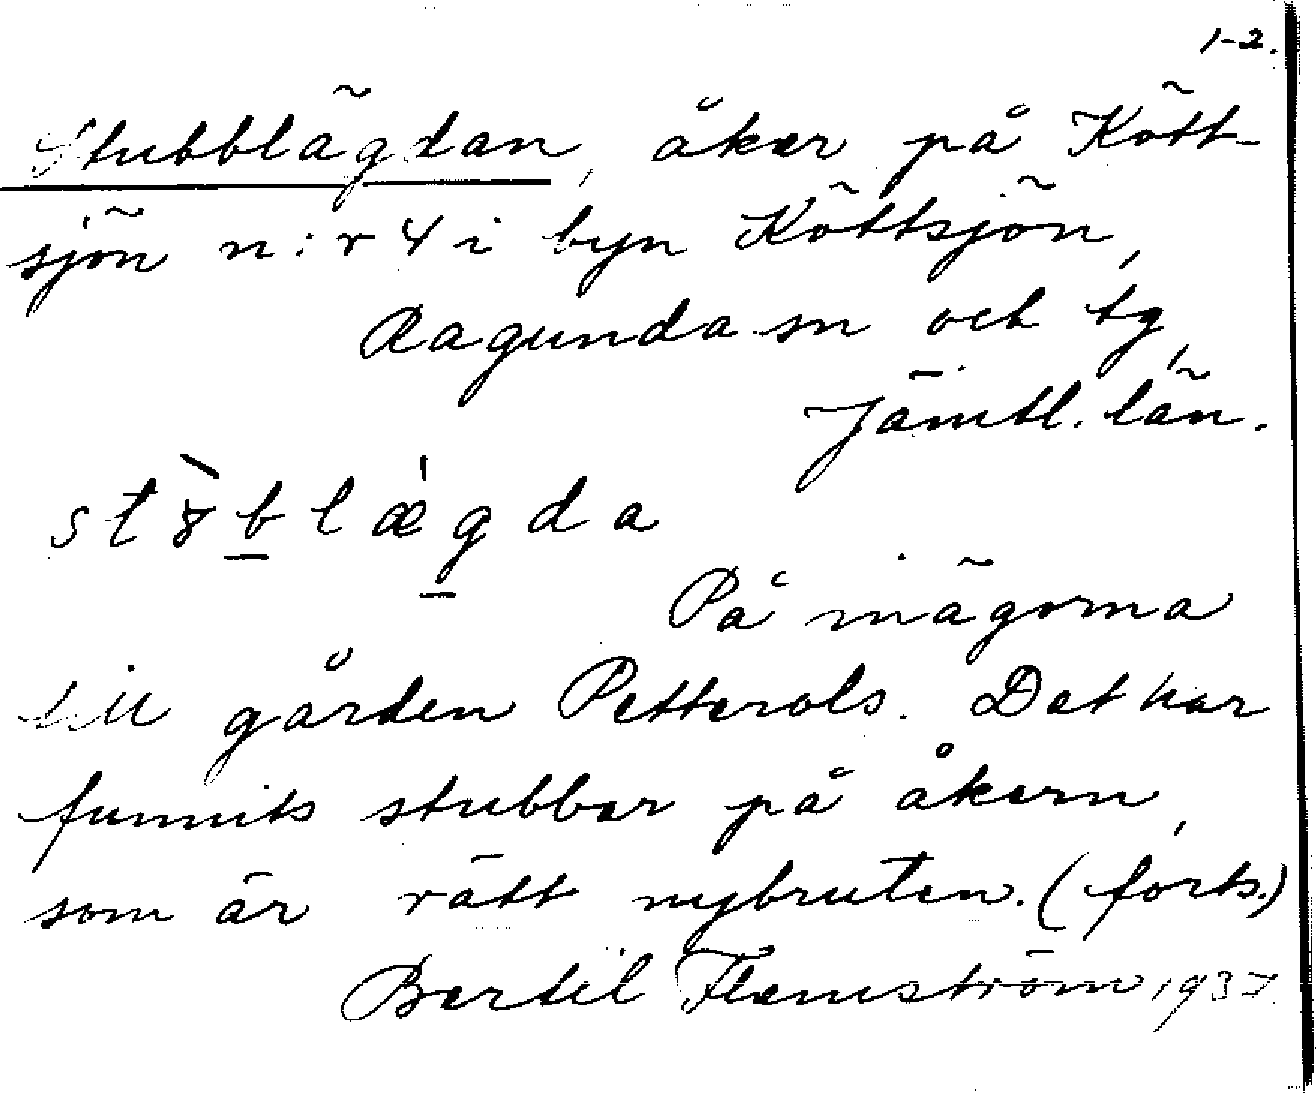 1-2.
Stubblägdan, åker på Kött-
sjön n:r 4 i byn Köttsjön,
Ragunda sn och tg,
Jämtl. län.
st8̀blǽgda
På mägorna
till gården Petterols. Det har
funnits stubbar på åkern,
som är rätt nybruten. (forts.)
Bertil Flemström 1937